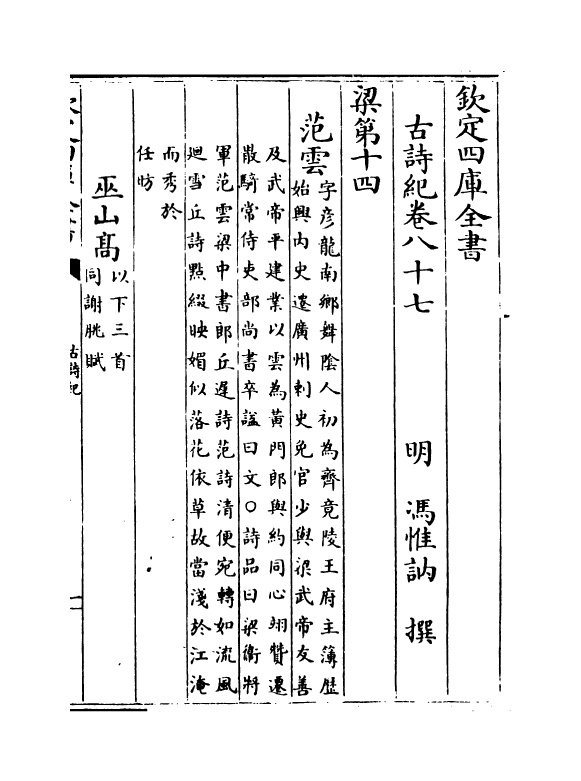 欽定四庫全書
古詩紀卷八十七
明 馮惟訥 撰
梁第十四
范雲
字彥龍南鄉舞陰人初為齊竟陵王府主簿歷
始興內史遷廣州刺史免官少與梁武帝友善
及武帝平建業以雲為黃門郎與約同心翊贊遷
散騎常侍吏部尚書卒謚曰文○詩品曰梁衛將
軍范雲梁中書郎丘遲詩范詩清便宛轉如流風
廻雪丘詩點綴映媚似落花依草故當淺於江淹
而秀於
任昉
巫山髙
以下三首
同謝朓賦
古詩紀
一